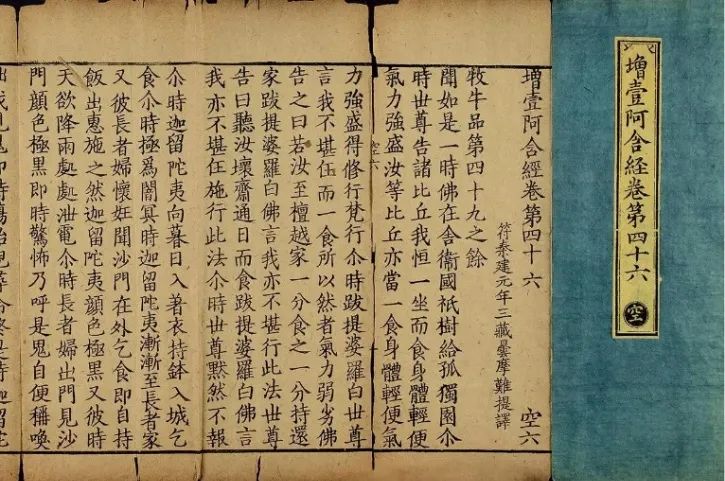 增壹阿含經卷第四十六 空
增壹阿含經卷第四十六 空六
苻秦建元年三藏曇摩難提譯
牧牛品第四十九之餘
聞如是一時佛在舍衞國祇樹給孤獨園尒
時世尊告諸比丘我恒一坐而食身體輕便
氣力強盛汝等比丘亦當一食身體輕便氣
空六
力強盛得修行梵行尒時跋提婆羅白世尊
言我不堪任而一食所以然者氣力弱劣佛
告之曰若汝至檀越家一分食之一分持還
家跋提婆羅白佛言我亦不堪行此法世尊
告曰聽汝壞齋通日而食跋提婆羅白佛言
我亦不堪任施行此法尒時世尊黙然不報
尒時迦留陀夷向暮日入著衣持鉢入城乞
食尒時極爲闇冥時迦留陀夷漸漸至長者家
又彼長者婦懷妊聞沙門在外乞食即自持
飯出惠施之然迦留陀夷顔色極黑又彼時
天欲降雨處處泄電尒時長者婦出門見沙
門顔色極黑即時驚怖乃呼是鬼自便稱喚